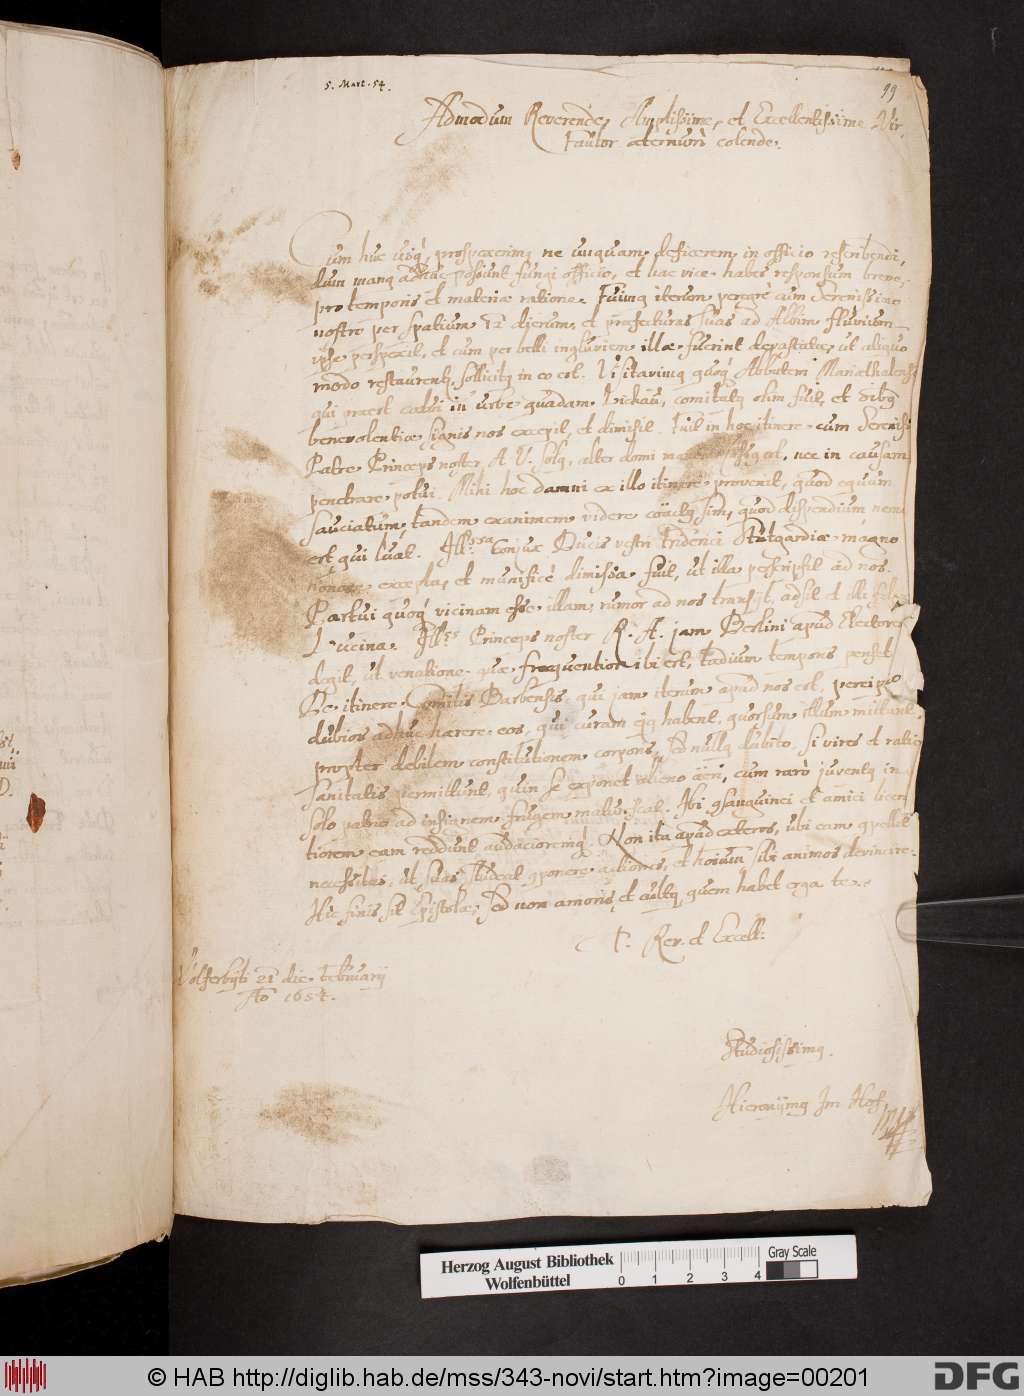 5. Mart. 54.
99
Admodum Reverende, Amplissime, et Excellentissime Vir
Fautor aeternum colende.
Cum huc usq́, prospexerimq ne unquam deficerem in officio rescribendi,
dum manq adhuc possunt fungi officio, et hac vice habes responsum breve,
pro temporis et materiae ratione. Fuimq iterum peregrè cum Serenissimo
nostro per spatium dierum, et praefecturas suas ad Albim fluvium
ipse perspexit, et cum per belli ingluviem illae fuerint devastatae, ut aliquo
modo restaurentr, sollicitq in eo est. Visitavimq quoq́ Abbatem Mariaethalensem
qui praeest caetui in urbe quadam, comitatq olim fuit, et sibq
benevolentiae signis nos excepit, et dimisit. Fuit in hoc itinere cum Serenissi
Patre Princeps noster A. V. solq, alter domi nec in causam
penetrare potui. Mihi hoc damni ex illo itinere provenit, quod equum
sauciatum, tandem exanimem videre coactq sim, quod dispendium nemo
est qui luat. Ill:ssa Conjux Ducis vestri Stutgardiae magno
honore excepta, et munificè dimissa fuit, ut illa perscripsit ad nos.
Partui quoq́ vicinam esse illam, rumor ad nos transijt, adsit et illi felix
Lucina. Ill:ss Princeps noster R. A. jam Berlini apud Electorem
degit, ut venatione quae frequentior ibi est, taedium temporis penset.
De itinere Comitis Barbensis, qui jam iterum apud nos est, percipio
dubios adhuc haerere eos, qui curam ejq habent, quorsum illum mittant
propter debilem constitutionem corporis, Ego nullq dubito, si vires et ratio
sanitatis permittunt, quin se exponet alieno aëri, cum rarò juventq in
solo patrio ad insignem frugem Ibi gsanguinei et amici licen
tiorem eam reddunt audacioremq́. Non ita apud exteros, ubi eam gpellit
necessitas, ut suas studeat gponere actiones, et hoium sibi animos devincire.
Hic finis sit Epistolae, sed non amoris et cultq quem habet erga te.
T. Rev. et Excell:
Wolferbyti 21 die Februarij
Ao 1654.
Studiosissimq.
Hieronymq Im Hof
Herzog August Bibliothek
Wolfenbüttel
0 1 2 3 4
Gray Scale
© HAB http://diglib.hab.de/mss/343-novi/start.htm?image=00201
DFG